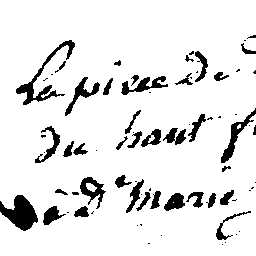 La piece de
du haut
à De marie